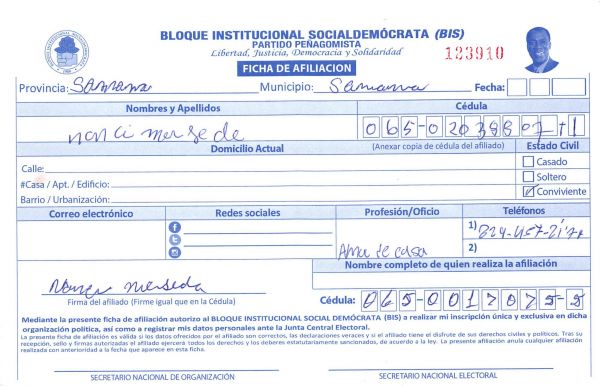 BLOQUE INSTITUCIONAL SOCIALDEMÓCRATA (BIS)
PARTIDO PEÑAGOMISTA
Libertad, Justicia, Democracia y Solidaridad
123910
FICHA DE AFILIACION
Provincia: Samana Municipio: Samana Fecha:
Nombres y Apellidos Cédula
nanci mersede 065-020388
Domicilio Actual (Anexar copia de cédula del afiliado) Estado Civil
Calle: Casado
#Casa / Apt. / Edificio: Soltero
Barrio / Urbanización: Conviviente
Correo electrónico Redes sociales Profesión/Oficio Teléfonos
1) 829-457-
Ama de casa 2)
Nombre completo de quien realiza la afiliación
Nancy merseda
Firma del afiliado (Firme igual que en la Cédula) Cédula: 065-0017075-5
Mediante la presente ficha de afiliación autorizo al BLOQUE INSTITUCIONAL SOCIAL DEMÓCRATA (BIS) a realizar mi inscripción única y exclusiva en dicha
organización política, así como a registrar mis datos personales ante la Junta Central Electoral.
La presente ficha de afiliación es válida si los datos ofrecidos por el afiliado son correctos, las declaraciones veraces y si el afiliado tiene el disfrute de sus derechos civiles y políticos. Tras su
recepción, sello y firmas autorizadas el afiliado ejercerá todos los derechos y los deberes estatutariamente sancionados, de acuerdo a la ley. La presente afiliación anula cualquier afiliación
realizada con anterioridad a la fecha que aparece en esta ficha.
SECRETARIO NACIONAL DE ORGANIZACIÓN SECRETARIO NACIONAL ELECTORAL